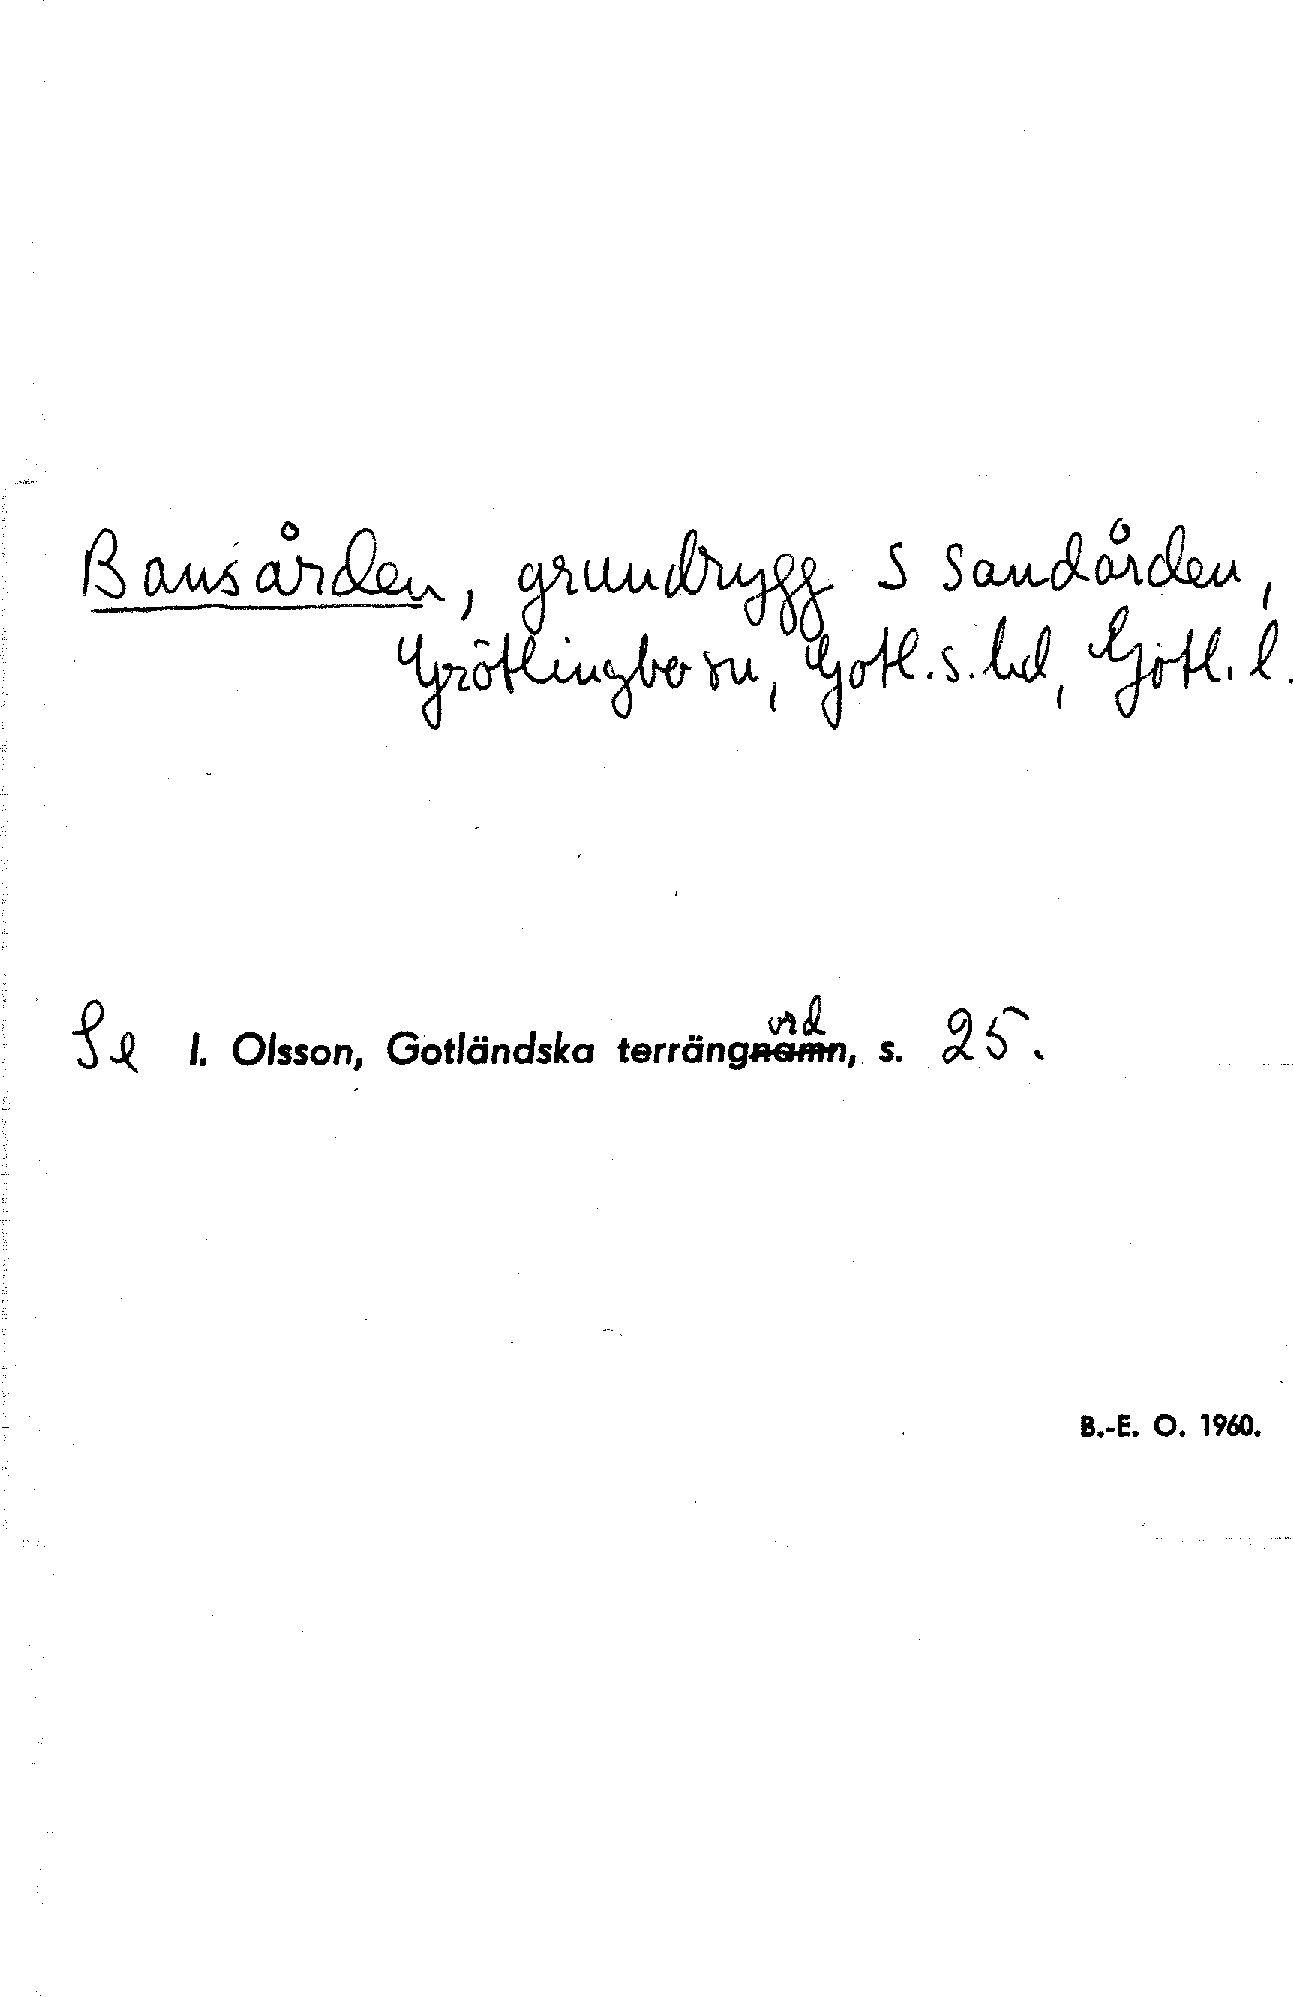 Bansården, grundrygg S Sandården,
Grötlingbo sn, Gotl. s. hd, Gotl. l.
Se I. Olsson, Gotländska terrängord, s. 25.
B.-E. O. 1960.